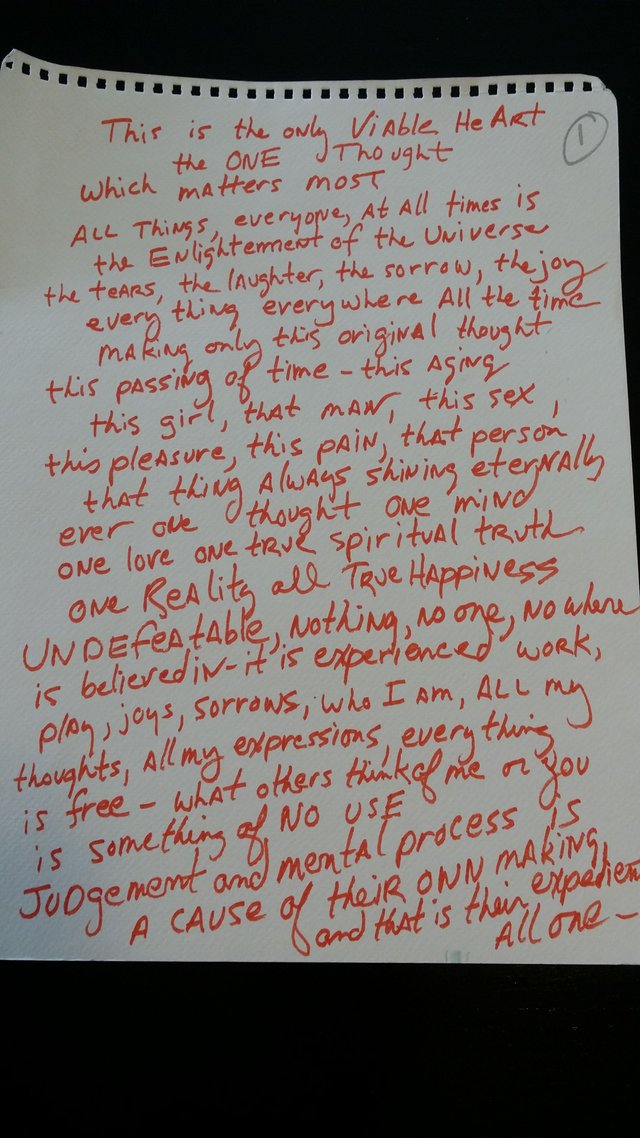 This is the only Viable HeArt
1
the ONE Thought
which matters most
ALL Things, everyone, At All times is
the Enlightenment of the Universe
the teARS, the lAughter, the sorrow, the joy
every thing everywhere All the time
mAking only this original thought
this pAssing of time - this Aging
this girl, that mAN, this sex,
this pleAsure, this pAiN, that person
that thing AlwAys shining eterNAlly
ever oNe thought ONE miND
ONE love one true spirituAl truth
ONE ReAlity all True HAppiNess
UNDEfeAtAble, Nothing, No one, No where
is believed iN - it is experienced work,
plAy, joys, sorrows, who I Am, ALL my
thoughts, All my expressions, everything
is free - whAt others think of me or you
is something of NO USE
JUDgement and mentAl process is
A CAUSE of their OWN mAking,
and thAt is their experien
All one -